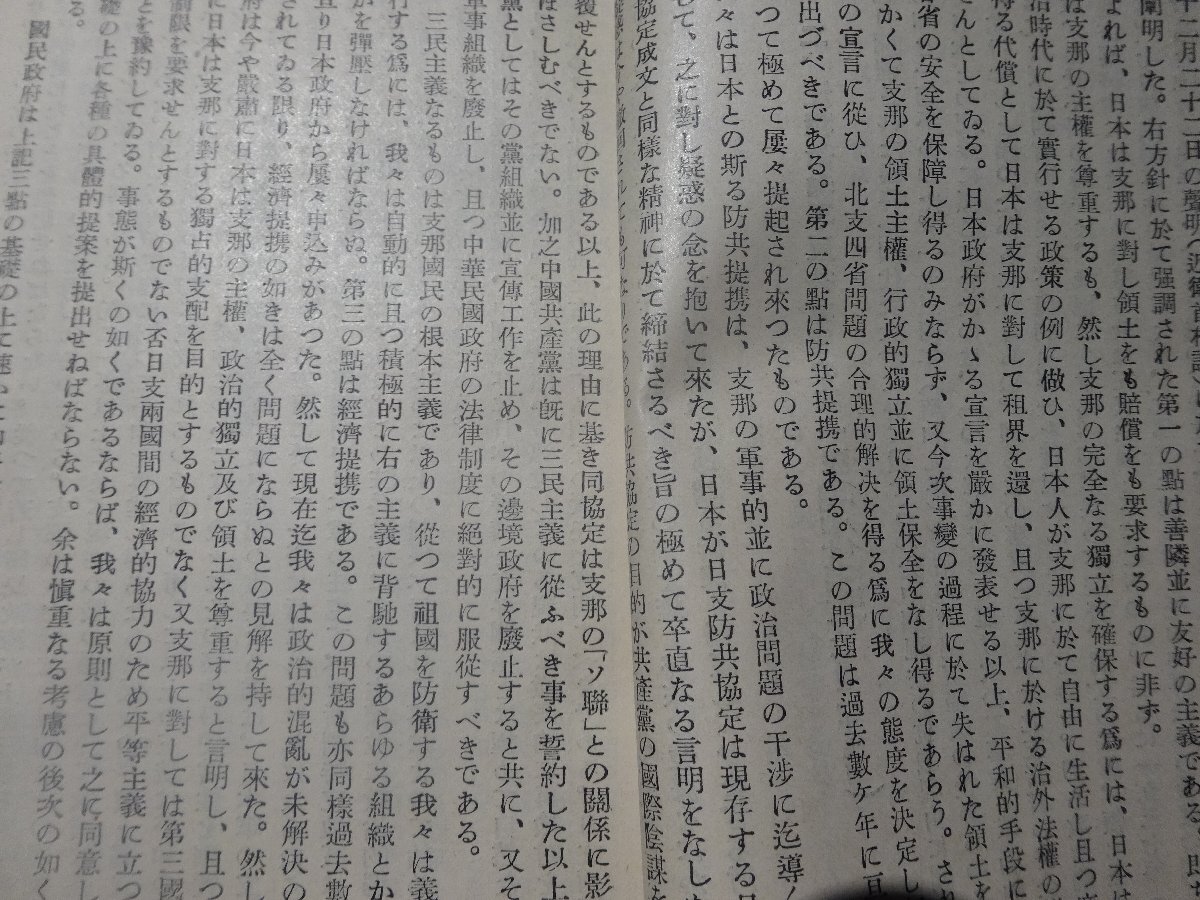 十二月二十二日の聲明(近衛首相
闡明した。右方針に於て强調された第一の點は善隣並に友好の主義である。
よれば、日本は支那に對し領土をも賠償をも要求するものに非ず。
は支那の主權を尊重するも、然し支那の完全なる獨立を確保する爲には、日本は
治時代に於て實行せる政策の例に做ひ、日本人が支那に於て自由に生活し且つ
得る代償として日本は支那に對して租界を還し、且つ支那に於ける治外法權の
さんとしてゐる。日本政府がかゝる宣言を嚴かに發表せる以上、平和的手段に
省の安全を保障し得るのみならず、又今次事變の過程に於て失はれた領土を
かくて支那の領土主權、行政的獨立並に領土保全をなし得るであらう。さ
の宣言に從ひ、北支四省問題の合理的解決を得る爲に我々の態度を決定し
出づべきである。第二の點は防共提携である。この問題は過去數ケ年に亘
つて極めて屢々提起され來つたものである。
々は日本との斯る防共提携は、支那の軍事的並に政治問題の干涉に迄導く
して、之に對し疑惑の念を抱いて來たが、日本が日支防共協定は現存する日
協定成文と同樣な精神に於て締結さるべき旨の極めて卒直なる言明をなし
防共協定の目的が共產黨の國際陰謀を
復せんとするものである以上、此の理由に基き同協定は支那の「ソ聯」との關係に影
ほさしむべきでない。加之中國共產黨は旣に三民主義に從ふべき事を誓約した以上
黨としてはその黨組織並に宣傳工作を止め、その邊境政府を廢止すると共に、又そ
軍事組織を廢止し、且つ中華民國政府の法律制度に絕對的に服從すべきである。
三民主義なるものは支那國民の根本主義であり、從つて祖國を防衛する我々は義
行する爲には、我々は自動的に且つ積極的に右の主義に背馳するあらゆる組織とか
かを彈壓しなければならぬ。第三の點は經濟提携である。この問題も亦同樣過去數
亘り日本政府から屢々申込みがあつた。然して現在迄我々は政治的混亂が未解決の
されてゐる限り、經濟提携の如きは全く問題にならぬとの見解を持して來た。然し
府は今や嚴肅に日本は支那の主權、政治的獨立及び領土を尊重すると言明し、且つ
に日本は支那に對する獨占的支配を目的とするものでなく又支那に對しては第三國
制限を要求せんとするものでない否日支兩國間の經濟的協力のため平等主義に立つ
とを豫約してゐる。事態が斯くの如くであるならば、我々は原則として之に同意し
礎の上に各種の具體的提案を提出せねばならない。余は愼重なる考慮の後次の如く
る。
國民政府は上記三點の基礎の上に速かに